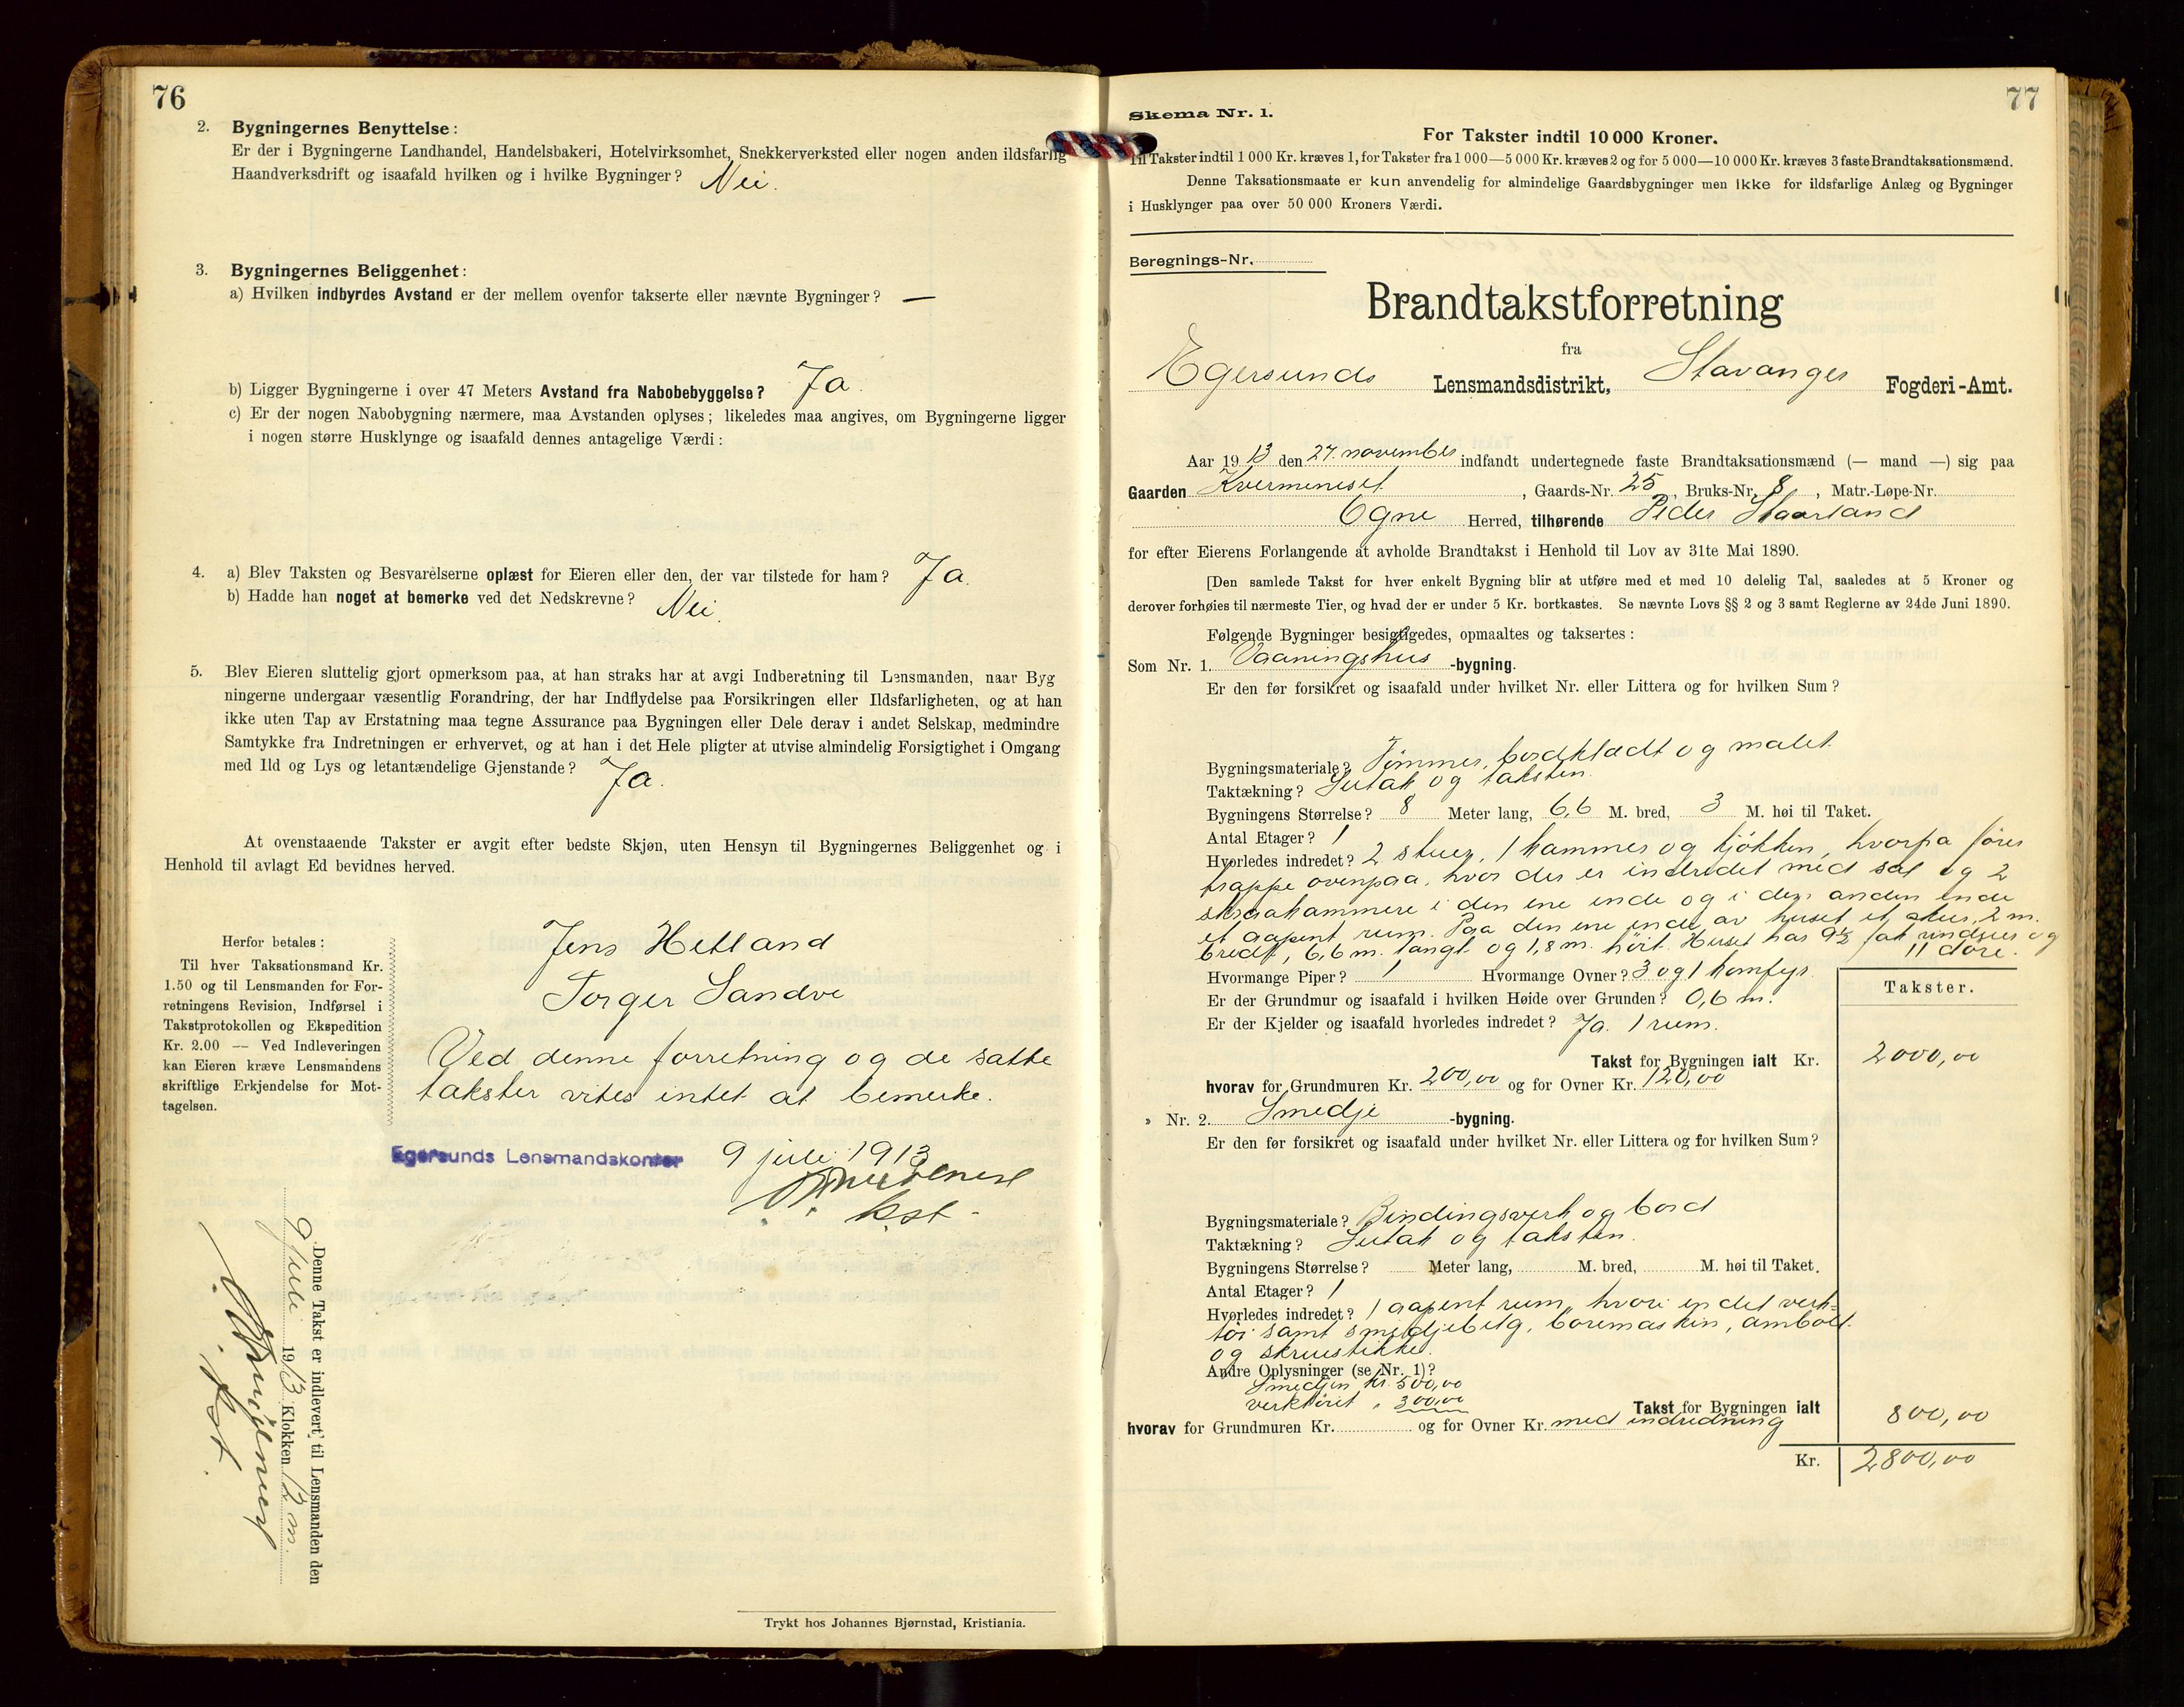 76
2. Bygningernes Benyttelse:
Er der i Bygningerne Landhandel, Handelsbakeri, Hotelvirksomhet, Snekkerverksted eller nogen anden ildsfarlig
Haandverksdrift og isaafald hvilken og i hvilke Bygninger? Nei.
3. Bygningernes Beliggenhet:
a) Hvilken indbyrdes Avstand er der mellem ovenfor takserte eller nævnte Bygninger? —
b) Ligger Bygningerne i over 47 Meters Avstand fra Nabobebyggelse? Ja.
c) Er der nogen Nabobygning nærmere, maa Avstanden oplyses; likeledes maa angives, om Bygningerne ligger
i nogen større Husklynge og isaafald dennes antagelige Værdi:
4. a) Blev Taksten og Besvarelserne oplæst for Eieren eller den, der var tilstede for ham? Ja.
b) Hadde han noget at bemerke ved det Nedskrevne? Nei.
5. Blev Eieren sluttelig gjort opmerksom paa, at han straks har at avgi Indberetning til Lensmanden, naar Byg
ningerne undergaar væsentlig Forandring, der har Indflydelse paa Forsikringen eller Ildsfarligheten, og at han
ikke uten Tap av Erstatning maa tegne Assurance paa Bygningen eller Dele derav i andet Selskap, medmindre
Samtykke fra Indretningen er erhvervet, og at han i det Hele pligter at utvise almindelig Forsigtighet i Omgang
med Ild og Lys og letantændelige Gjenstande? Ja.
At ovenstaaende Takster er avgit efter bedste Skjøn, uten Hensyn til Bygningernes Beliggenhet og i
Henhold til avlagt Ed bevidnes herved.
Herfor betales:
Til hver Taksationsmand Kr.
1.50 og til Lensmanden for For-
retningens Revision, Indførsel i
Takstprotokollen og Ekspedition
Kr. 2.00 — Ved Indleveringen
kan Eieren kræve Lensmandens
skriftlige Erkjendelse for Mot-
tagelsen.
Jens Hetland
Torger Sandve
Ved denne forretning og de satte
takster vites intet at bemerke.
Egersunds Lensmandskontor 9 juli 1913
kst.
Denne Takst er indlevert til Lensmanden den
9 juli 1913 Klokken 12 m.
kst.
Trykt hos Johannes Bjørnstad, Kristiania.
77
Skema Nr. 1.
For Takster indtil 10 000 Kroner.
Til Takster indtil 1 000 Kr. kræves 1, for Takster fra 1 000—5 000 Kr. kræves 2 og for 5 000—10 000 Kr. kræves 3 faste Brandtaksationsmænd.
Denne Taksationsmaate er kun anvendelig for almindelige Gaardsbygninger men ikke for ildsfarlige Anlæg og Bygninger
i Husklynger paa over 50 000 Kroners Værdi.
Beregnings-Nr.
Brandtakstforretning
fra
Egersunds Lensmandsdistrikt, Stavanger Fogderi-Amt.
Aar 1913 den 27. november indfandt undertegnede faste Brandtaksationsmænd (— mand —) sig paa
Gaarden Kvermeneset, Gaards-Nr. 25, Bruks-Nr. 8, Matr.-Løpe-Nr.
Ogne Herred, tilhørende Peder Staarland
for efter Eierens Forlangende at avholde Brandtakst i Henhold til Lov av 31te Mai 1890.
[Den samlede Takst for hver enkelt Bygning blir at utføre med et med 10 delelig Tal, saaledes at 5 Kroner og
derover forhøies til nærmeste Tier, og hvad der er under 5 Kr. bortkastes. Se nævnte Lovs §§ 2 og 3 samt Reglerne av 24de Juni 1890.
Følgende Bygninger besigtigedes, opmaaltes og taksertes:
Som Nr. 1. Vaaningshus -bygning.
Er den før forsikret og isaafald under hvilket Nr. eller Littera og for hvilken Sum?
Bygningsmateriale? Tømmer, bordklædt og malet.
Taktækning? Sutak og taksten.
Bygningens Størrelse? 8 Meter lang, 6,6 M. bred, 3 M. høi til Taket.
Antal Etager? 1
Hvorledes indredet? 2 stuer, 1 kammer og kjøkken, hvorpa fører
trappe ovenpaa, hvor der er indredet med sal og 2
skraakammere i den ene ende og i den anden ende
et aapent rum. Paa den ene ende av huset et skur, 2 m.
bredt, 6,6 m. langt og 1,8 m. høit. Huset har 9½ fak vinduer og
11 døre.
Hvormange Piper? 1 Hvormange Ovner? 3 og 1 komfyr.
Takster.
Er der Grundmur og isaafald i hvilken Høide over Grunden? 0,6 m.
Er der Kjelder og isaafald hvorledes indredet? Ja. 1 rum.
Takst for Bygningen ialt Kr. 2000,00
hvorav for Grundmuren Kr. 200,00 og for Ovner Kr. 120,00
» Nr. 2. Smedje -bygning.
Er den før forsikret og isaafald under hvilket Nr. eller Littera og for hvilken Sum?
Bygningsmateriale? Bindingsverk og bord
Taktækning? Sutak og taksten.
Bygningens Størrelse? Meter lang, M. bred, M. høi til Taket.
Antal Etager? 1
Hvorledes indredet? 1 aapent rum, hvori en del verk=
tøi samt smedjebelg, boremaskin, ambolt
og skruestikke.
Andre Oplysninger (se Nr. 1)?
Smedjen kr. 500,00
verktøiet " 300,00
Takst for Bygningen ialt 800,00
hvorav for Grundmuren Kr. og for Ovner Kr. med indredning
Kr. 2800,00